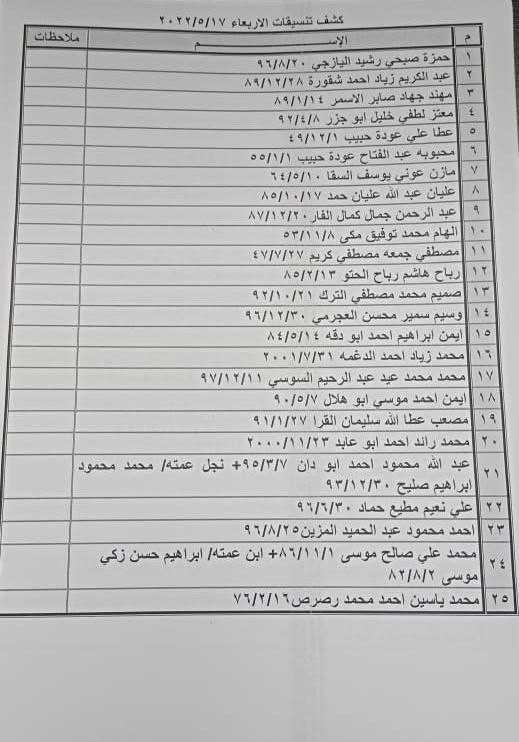 كشف تنسيقات الاربعاء ٢٠٢٢/٥/١٧
م الاســـم ملاحظات
١ حمزة صبحي رشيد اليازجي ٩٦/٨/٢٠
٢ عبد الكريم زياد احمد شقورة ٨٩/١٢/٢٨
٣ مهند جهاد صابر الاسمر ٨٩/١/١٤
٤ معتز لطفي خليل ابو جزر ٩٢/٤/٨
٥ عطا علي عودة حبيب ٤٩/١٢/١
٦ محبوبه عبد الفتاح عودة حبيب ٥٥/١/١
٧ مازن عوني يوسف السقا ٦٤/٥/١٠
٨ عليان عبد الله عليان حمد ٨٥/١٠/١٧
٩ عبد الرحمن جمال كمال الفار ٨٧/١٢/٢٠
١٠ الهام محمد توفيق مكي ٥٣/١١/٨
١١ مصطفي جمعه مصطفي كريم ٤٧/٧/٢٧
١٢ رباح هاشم رباح الحتو ٨٥/٢/١٣
١٣ صميم محمد مصطفي الترك ٩٢/١٠/٢١
١٤ وسيم سمير محسن العجرمي ٩٦/١٢/٣٠
١٥ ايمن ابراهيم احمد ابو دقه ٨٤/٥/١٤
١٦ محمد زياد احمد الدغمه ٢٠٠١/٧/٣١
١٧ محمد محمد عيد عبد الرحيم السوسي ٩٧/١٢/١١
١٨ ايمن احمد موسي ابو هلال ٩٠/٥/٧
١٩ مصعب عطا الله سليمان القرا ٩١/١/٢٧
٢٠ محمد رائد احمد ابو عابد ٢٠٠٠/١١/٢٣
٢١ عبد الله محمود احمد ابو دان ٩٥/٣/٧+ نجل عمته/ محمد محمود
ابراهيم صليح ٩٣/١٢/٣٠
٢٢ علي نعيم مطيع حماد ٩٦/٦/٣٠
٢٣ احمد محمود عبد الحميد المزين ٩٦/٨/٢٥
٢٤ محمد علي صالح موسى ٨٦/١١/١+ ابن عمته/ ابراهيم حسن زكي
موسى ٨٢/٨/٢
٢٥ محمد ياسين احمد محمد رصرص ٧٦/٢/١٦